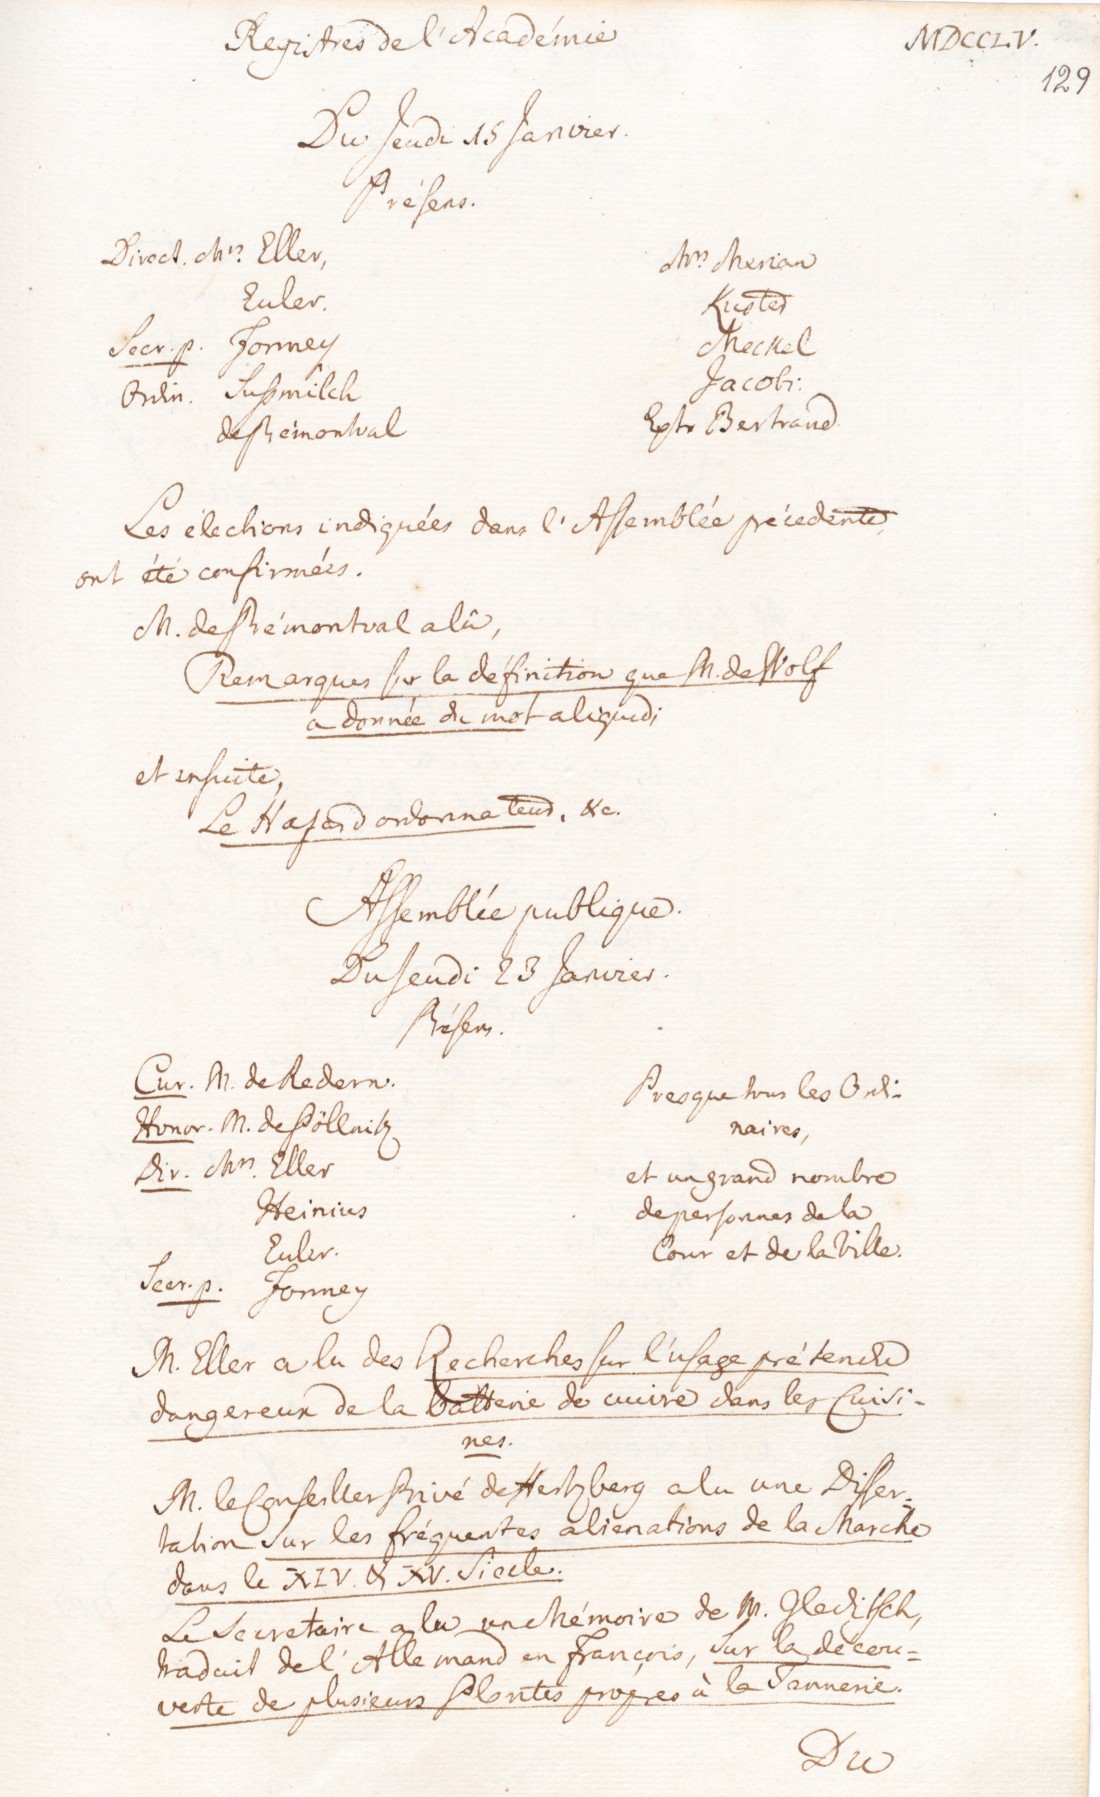 Registres de l'Académie
MDCCLV.
129
Du Jeudi 15 Janvier.
Présens.
Direct. Mrs. Eller,
Euler.
Secr. p. Formey
Ordin. Sussmilch
de Prémontval
Mrs Merian
Kuster
Meckel
Jacobi.
Extr Bertrand
Les élections indiquées dans l'Assemblée précedente,
ont été confirmées.
M. de Prémontval a lû,
Remarques sur la définition que M. de Wolf
a donnée du mot aliquid;
et ensuite,
Le Hasard ordonnateur, &c.
Assemblée publique.
Du Jeudi 23 Janvier.
Présens.
Cur. M. de Redern.
Honor. M. de Pöllnitz
Dir. Mrs. Eller
Heinius
Euler.
Secr. p. Formey
Presque tous les Ordi-
naires,
et un grand nombre
de personnes de la
Cour et de la Ville.
M. Eller a lu des Recherches sur l'usage prétendu
dangereux de la batterie de cuivre dans les Cuisi-
nes.
M. le Conseiller Privé de Hertzberg a lu une Disser-
tation sur les fréquentes alienations de la Marche
dans le XIV. & XV. Siecle.
Le Secretaire a lu un Mémoire de M. Gleditsch,
traduit de l'Allemand en françois, sur la décou-
verte de plusieurs Plantes propres à la Tannerie.
Du